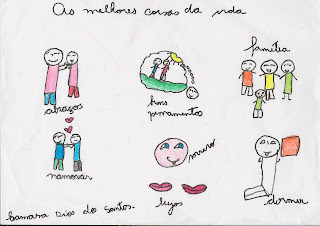 As melhores coisas da vida
família
abraços
bons
pensamentos
namorar
sorriso
beijos
dormir
dos Santos.